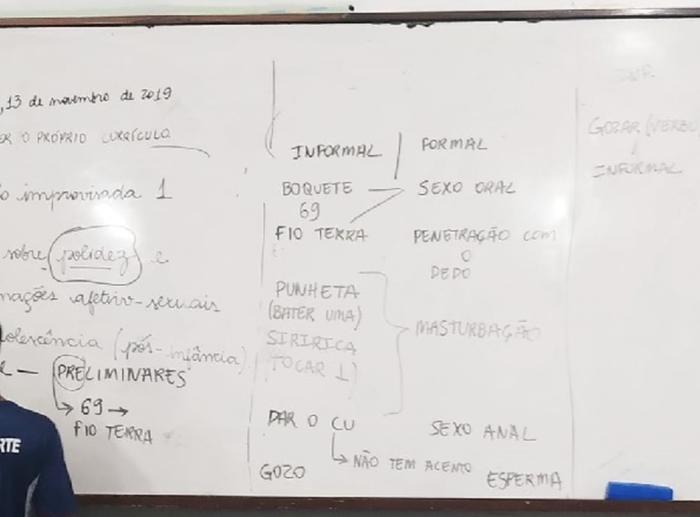 , 13 de novembro de 2019
O PRÓPRIO CURRÍCULO
improvisada 1
sobre polidez e
mações afetivo-sexuais
olescência (pós-infância)
— PRELIMINARES
→ 69 →
FIO TERRA
INFORMAL
BOQUETE
69
FIO TERRA
PUNHETA
(BATER UMA)
SIRIRICA
(TOCAR 1)
DAR O CU
→ NÃO TEM ACENTO
GOZO
FORMAL
SEXO ORAL
PENETRAÇÃO COM
O
DEDO
MASTURBAÇÃO
SEXO ANAL
ESPERMA
GOZAR (VERBO)
INFORMAL
RTE